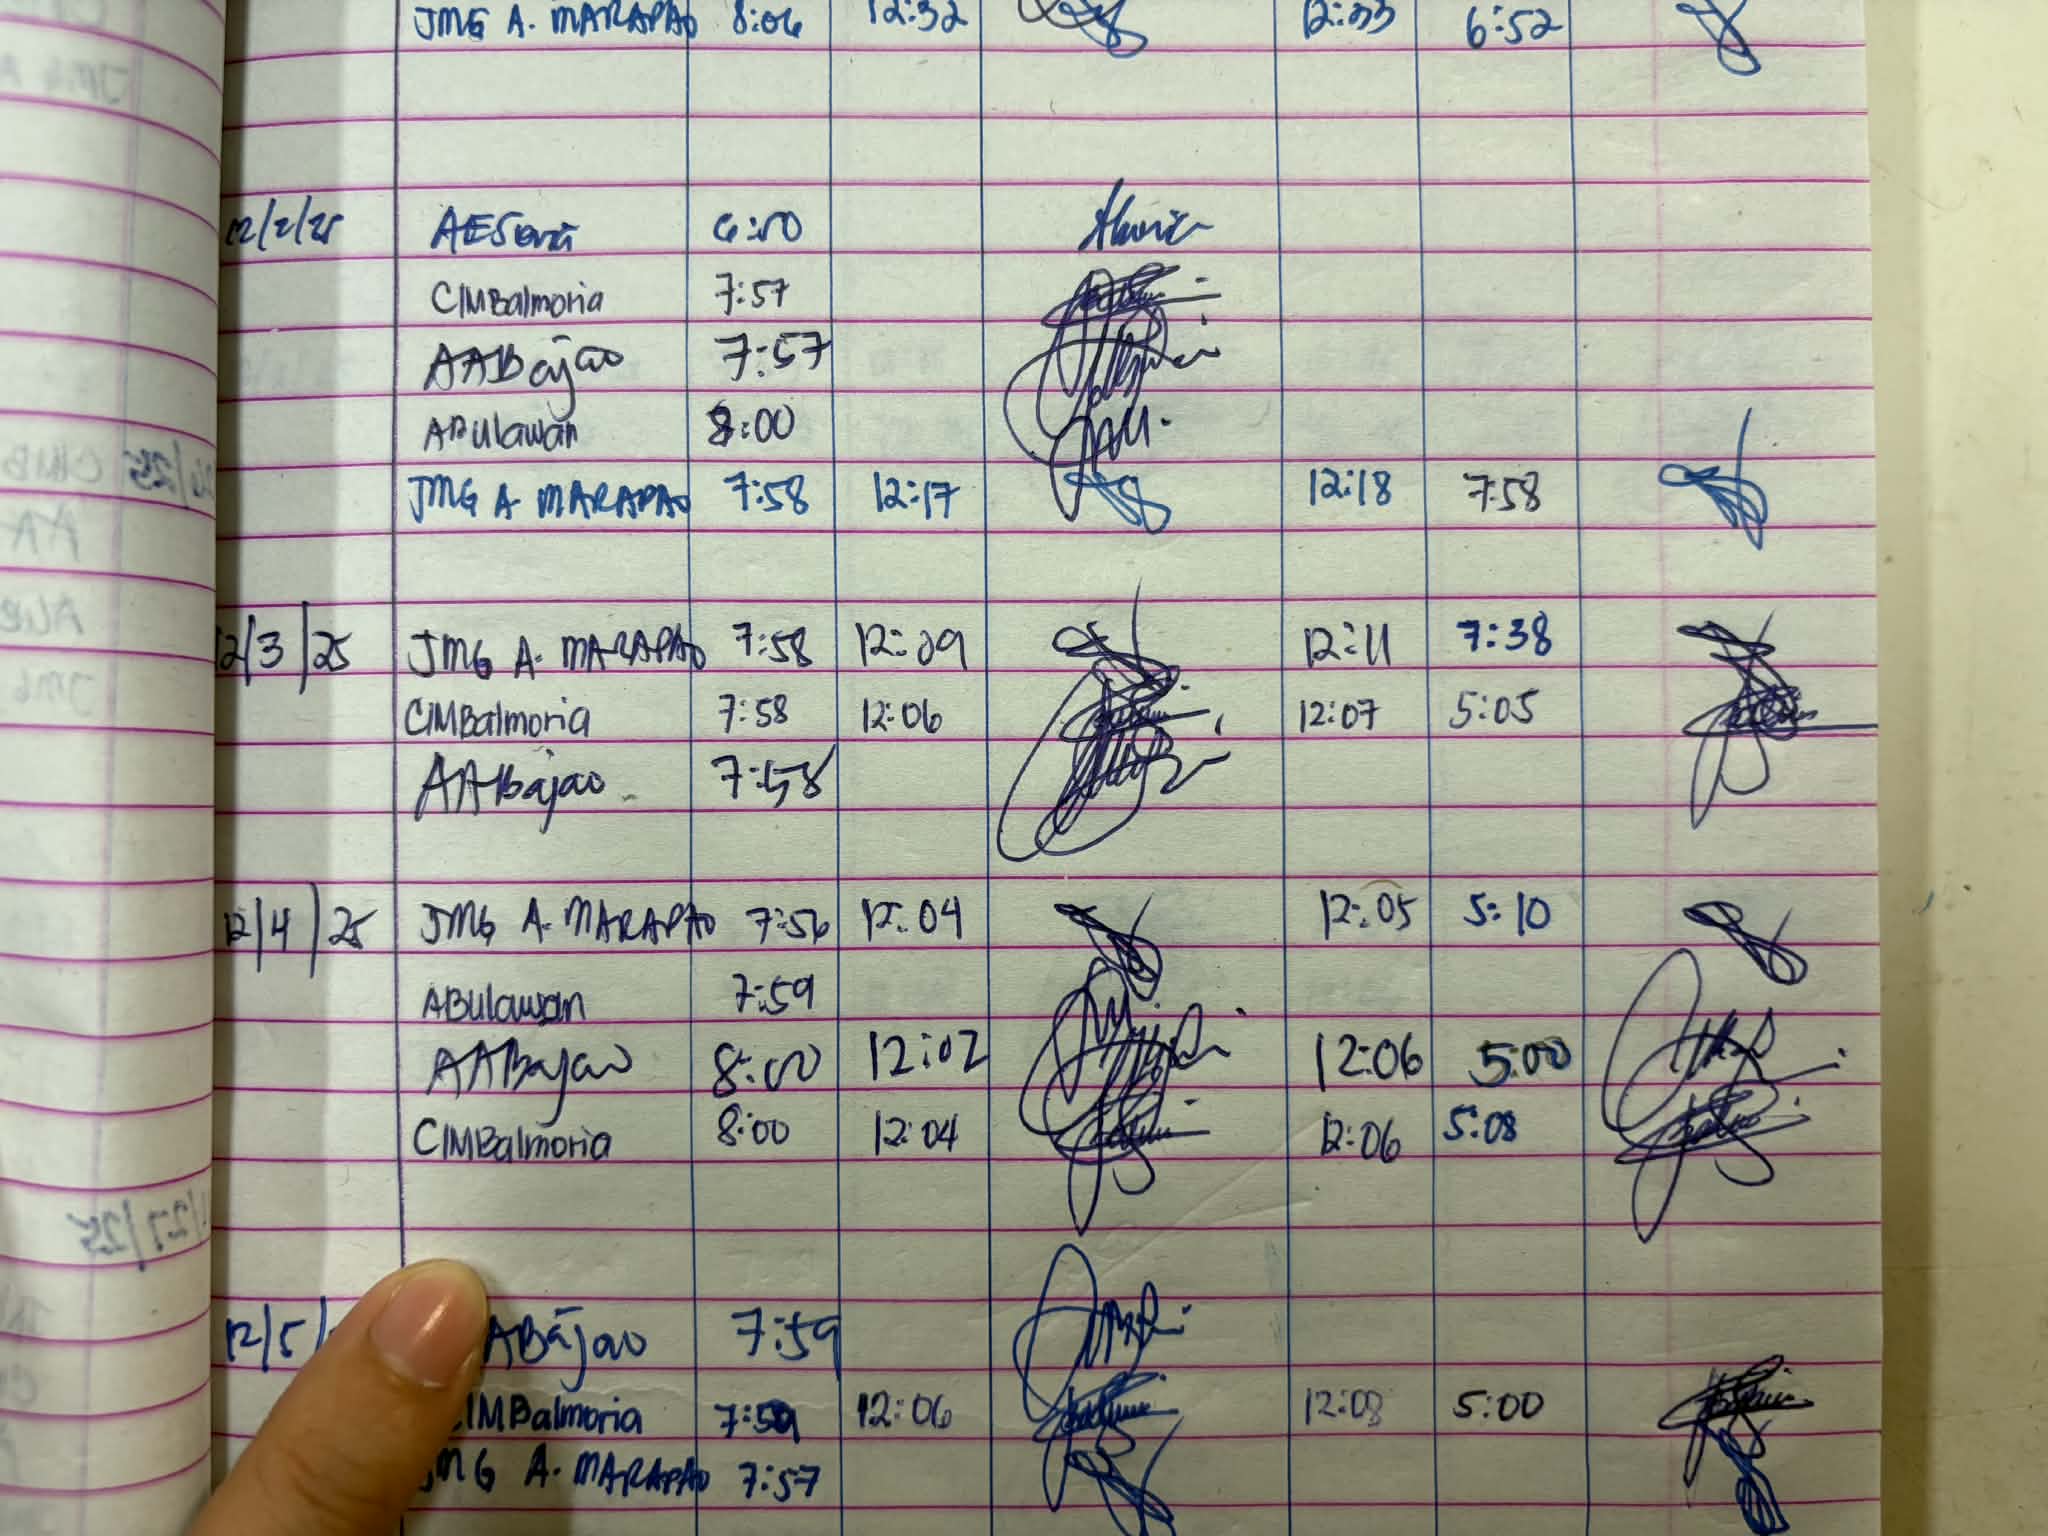 JMG A. MARAPAO 8:06 12:32 12:33 6:52
12/2/25 6:50
CIMBalmoria 7:57
AABajao 7:57
ABulawan 8:00
JMG A. MARAPAO 7:58 12:17 12:18 7:58
12/3/25 JMG A. MARAPAO 7:58 12:09 12:11 7:38
CIMBalmoria 7:58 12:06 12:07 5:05
AABajao 7:58
12/4/25 JMG A. MARAPAO 7:56 12:04 12:05 5:10
ABulawan 7:59
AABajao 8:00 12:02 12:06 5:00
CIMBalmoria 8:00 12:04 12:06 5:08
12/5/ ABajao 7:59
CIMBalmoria 7:59 12:06 12:08 5:00
JMG A. MARAPAO 7:57